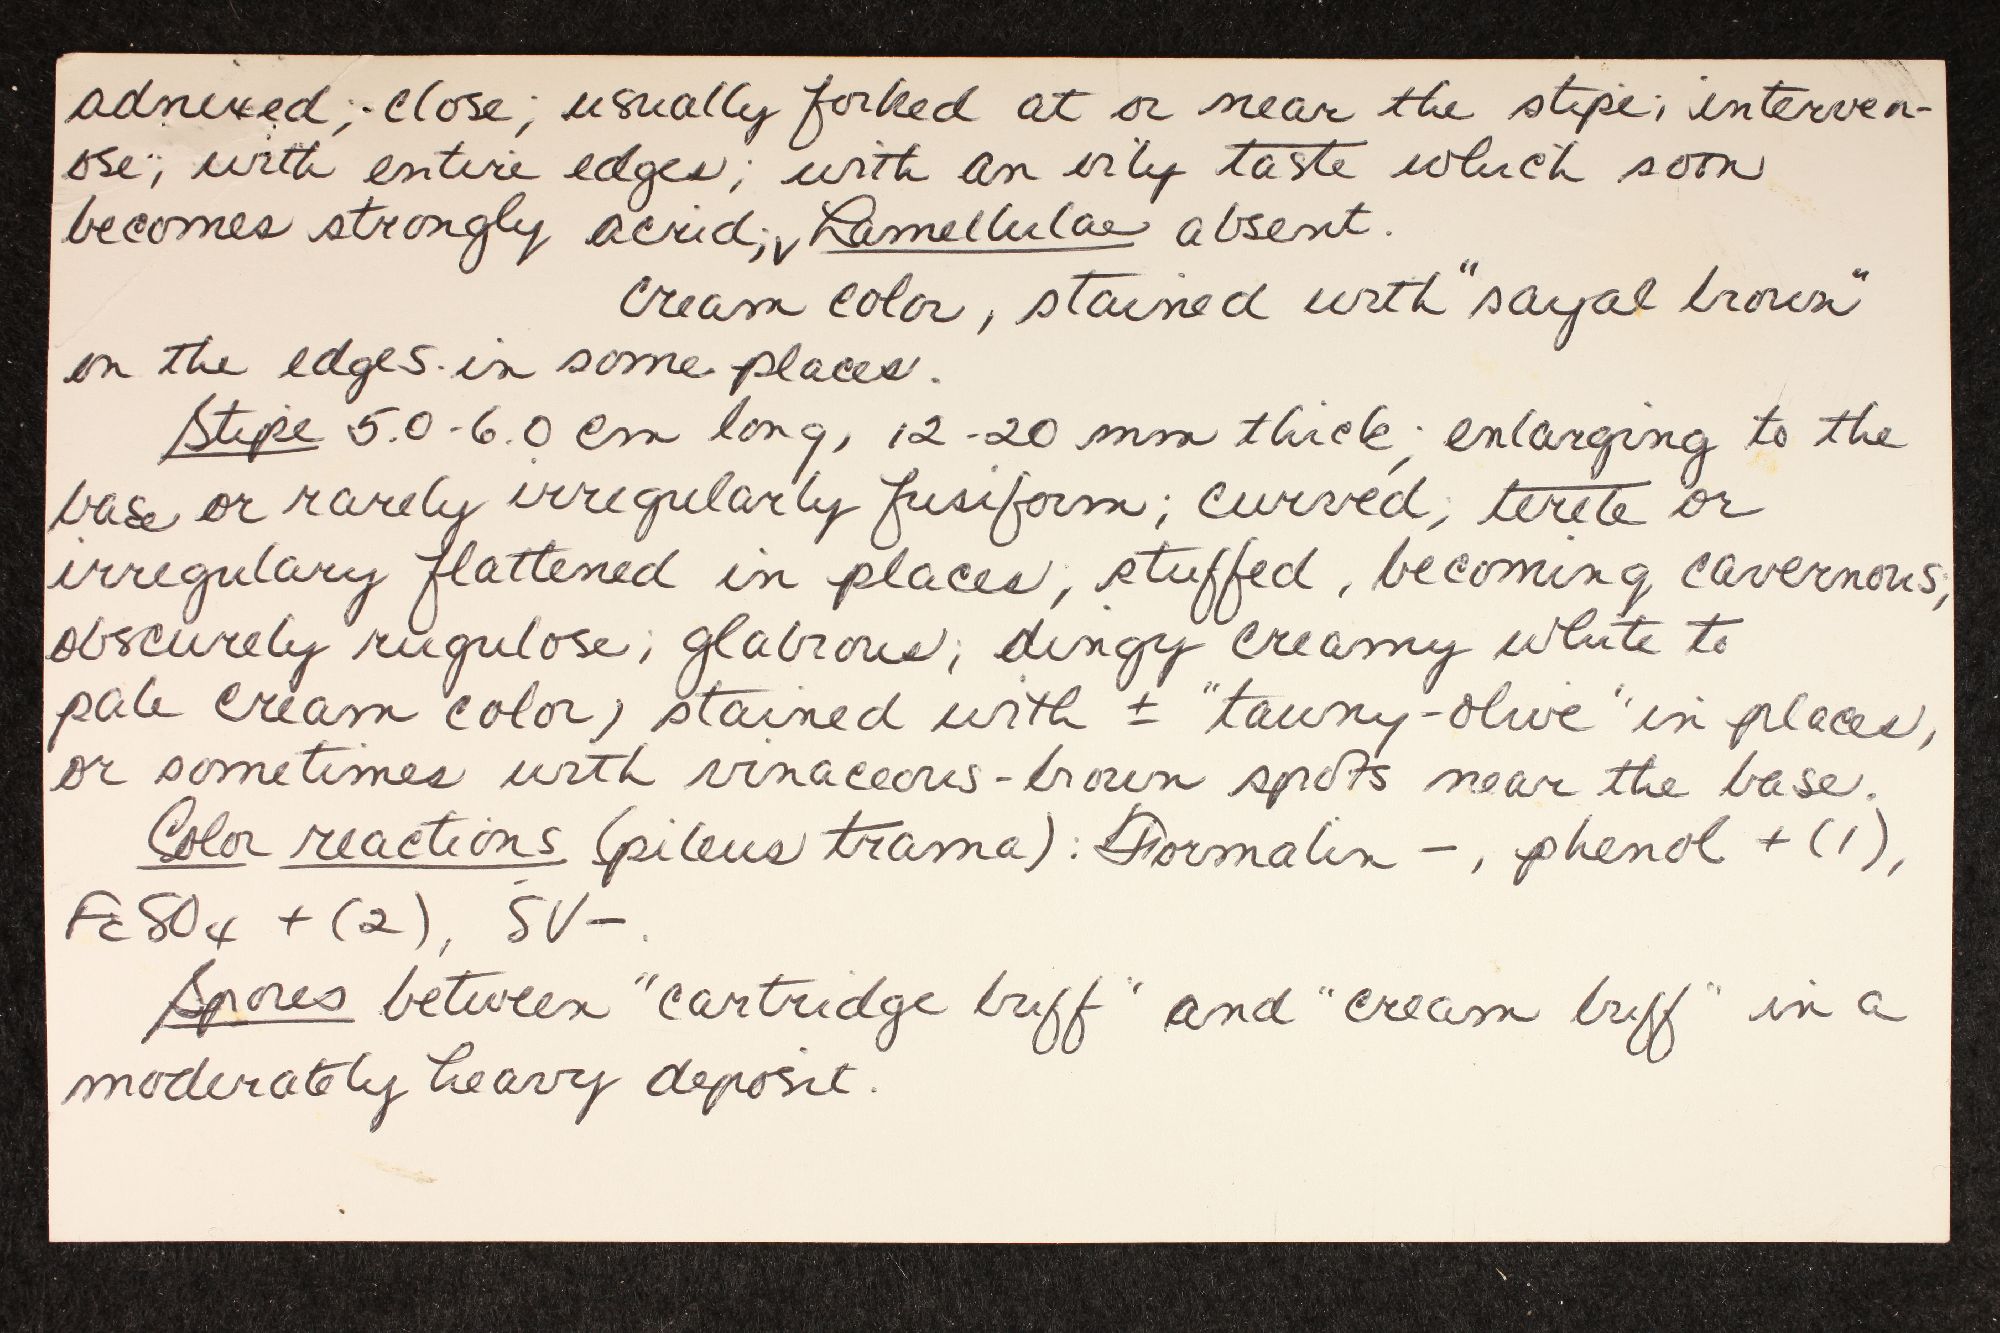 adnexed; close; usually forked at or near the stipe; interven-
ose; with entire edges; with an oily taste which soon
becomes strongly acrid; Lamellulae absent.
cream color, stained with "sayal brown"
on the edges in some places.
Stipe 5.0-6.0 cm long, 12-20 mm thick; enlarging to the
base or rarely irregularly fusiform; curved; terete or
irregulary flattened in places; stuffed, becoming cavernous;
obscurely rugulose; glabrous; dingy creamy white to
pale cream color, stained with ± "tawny-olive" in places,
or sometimes with vinaceous-brown spots near the base.
Color reactions (pileus trama): Formalin -, phenol + (1),
FeSO4 + (2), SV-.
Spores between "cartridge buff" and "cream buff" in a
moderately heavy deposit.